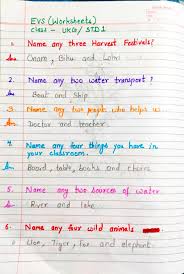 EVS (Worksheets)
Class - UKG/ STD 1
1. Name any three Harvest Festivals?
Ans. Onam, Bihu and Lohri
2. Name any two water transport?
Boat and Ship
3. Name any two people who helps us.
Doctor and teacher
4. Name any four things you have in
your classroom.
Board, table, books and chairs
5. Name any two sources of water.
River and lake
6. Name any four wild animals
Lion, Tiger, Fox and elephant